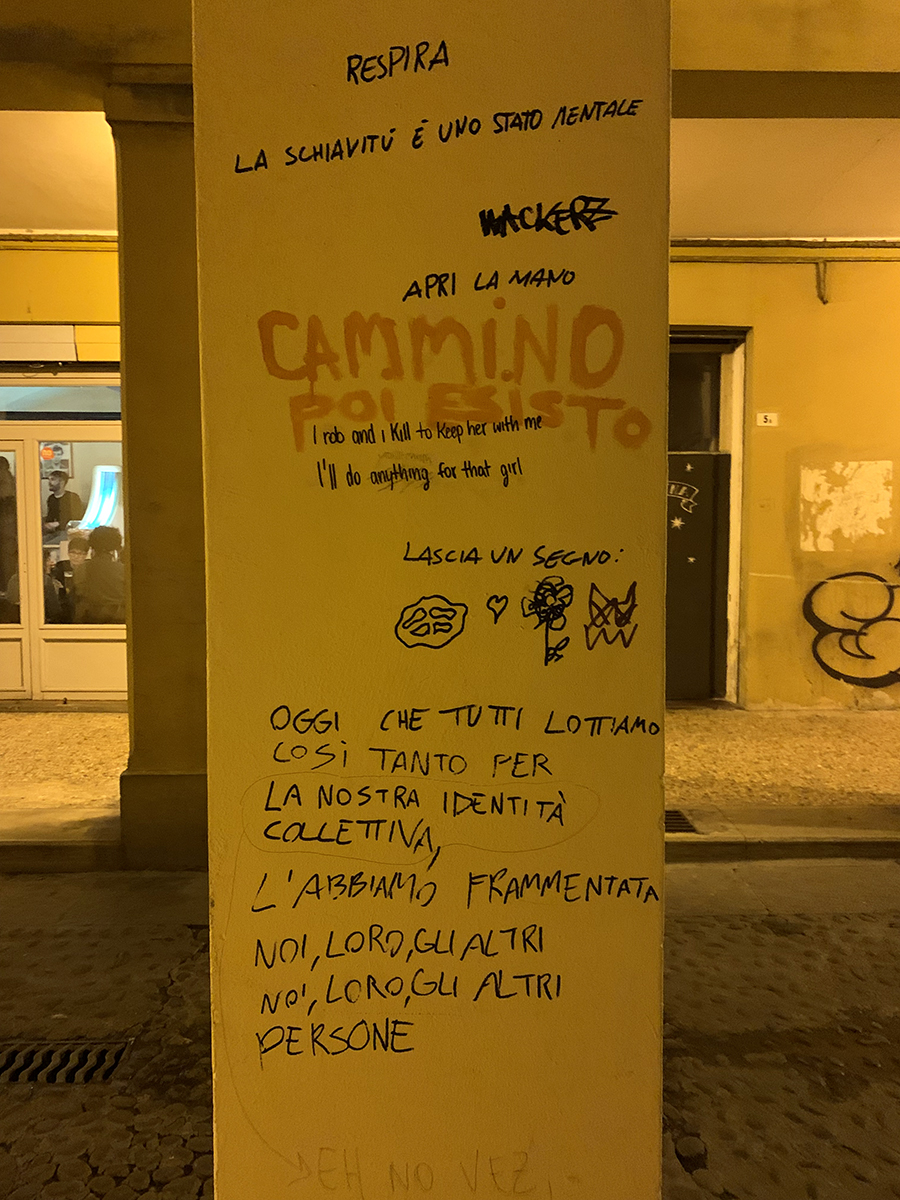 RESPIRA
LA SCHIAVITÚ É UNO STATO MENTALE
WACKERZ
APRI LA MANO
CAMMINO
POI ESISTO
I rob and i Kill to Keep her with me
I'll do anything for that girl
LASCIA UN SEGNO:
OGGI CHE TUTTI LOTTIAMO
COSÌ TANTO PER
LA NOSTRA IDENTITÀ
COLLETTIVA,
L'ABBIAMO FRAMMENTATA
NOI, LORO, GLI ALTRI
NOI, LORO, GLI ALTRI
PERSONE
EH NO VEZ
5A
NA